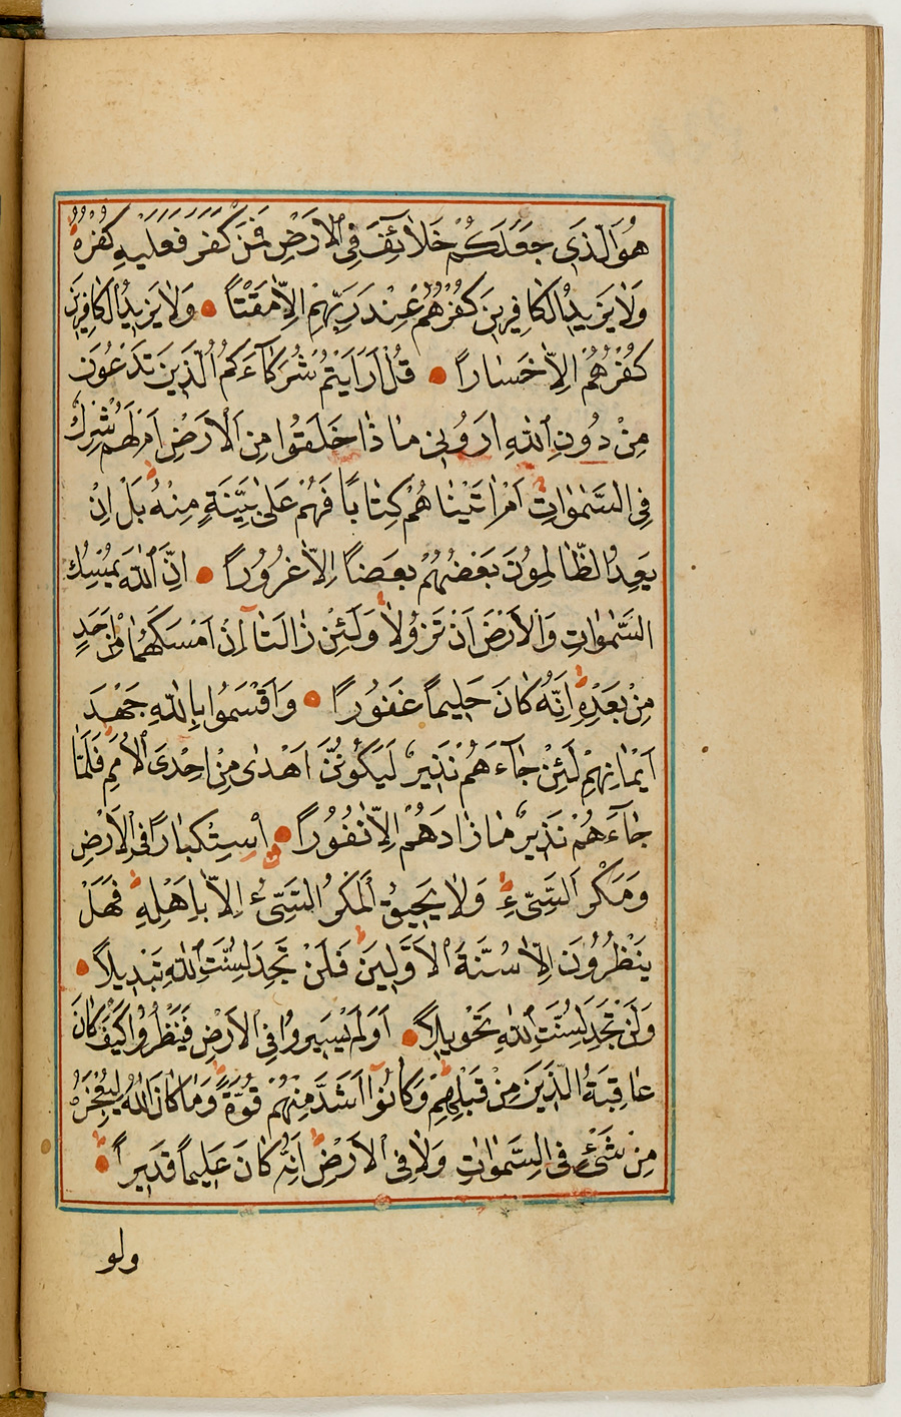 هُوَ الَّذِي جَعَلَكُمْ خَلَائِفَ فِي الْاَرْضِ فَمَنْ كَفَرَ فَعَلَيْهِ كُفْرُهُ
وَلَا يَزِيدُ الْكَافِرِينَ كُفْرُهُمْ عِنْدَ رَبِّهِمْ اِلَّا مَقْتًا وَلَا يَزِيدُ الْكَافِرِينَ
كُفْرُهُمْ اِلَّا خَسَارًا قُلْ اَرَاَيْتُمْ شُرَكَآءَكُمُ الَّذِينَ تَدْعُونَ
مِنْ دُونِ اللّٰهِ اَرُونِي مَاذَا خَلَقُوا مِنَ الْاَرْضِ اَمْ لَهُمْ شِرْكٌ
فِي السَّمٰوَاتِ اَمْ اٰتَيْنَاهُمْ كِتَابًا فَهُمْ عَلٰى بَيِّنَةٍ مِنْهُ بَلْ اِنْ
يَعِدُ الظَّالِمُونَ بَعْضُهُمْ بَعْضًا اِلَّا غُرُورًا اِنَّ اللّٰهَ يُمْسِكُ
السَّمٰوَاتِ وَالْاَرْضَ اَنْ تَزُولَا وَلَئِنْ زَالَتَا اِنْ اَمْسَكَهُمَا مِنْ اَحَدٍ
مِنْ بَعْدِهِ اِنَّهُ كَانَ حَلِيمًا غَفُورًا وَاَقْسَمُوا بِاللّٰهِ جَهْدَ
اَيْمَانِهِمْ لَئِنْ جَآءَهُمْ نَذِيرٌ لَيَكُونُنَّ اَهْدٰى مِنْ اِحْدَى الْاُمَمِ فَلَمَّا
جَآءَهُمْ نَذِيرٌ مَا زَادَهُمْ اِلَّا نُفُورًا اِسْتِكْبَارًا فِي الْاَرْضِ
وَمَكْرَ السَّيِّئِ وَلَا يَحِيقُ الْمَكْرُ السَّيِّئُ اِلَّا بِاَهْلِهِ فَهَلْ
يَنْظُرُونَ اِلَّا سُنَّةَ الْاَوَّلِينَ فَلَنْ تَجِدَ لِسُنَّتِ اللّٰهِ تَبْدِيلًا
وَلَنْ تَجِدَ لِسُنَّتِ اللّٰهِ تَحْوِيلًا اَوَلَمْ يَسِيرُوا فِي الْاَرْضِ فَيَنْظُرُوا كَيْفَ كَانَ
عَاقِبَةُ الَّذِينَ مِنْ قَبْلِهِمْ وَكَانُوا اَشَدَّ مِنْهُمْ قُوَّةً وَمَا كَانَ اللّٰهُ لِيُعْجِزَهُ
مِنْ شَيْءٍ فِي السَّمٰوَاتِ وَلَا فِي الْاَرْضِ اِنَّهُ كَانَ عَلِيمًا قَدِيرًا
ولو